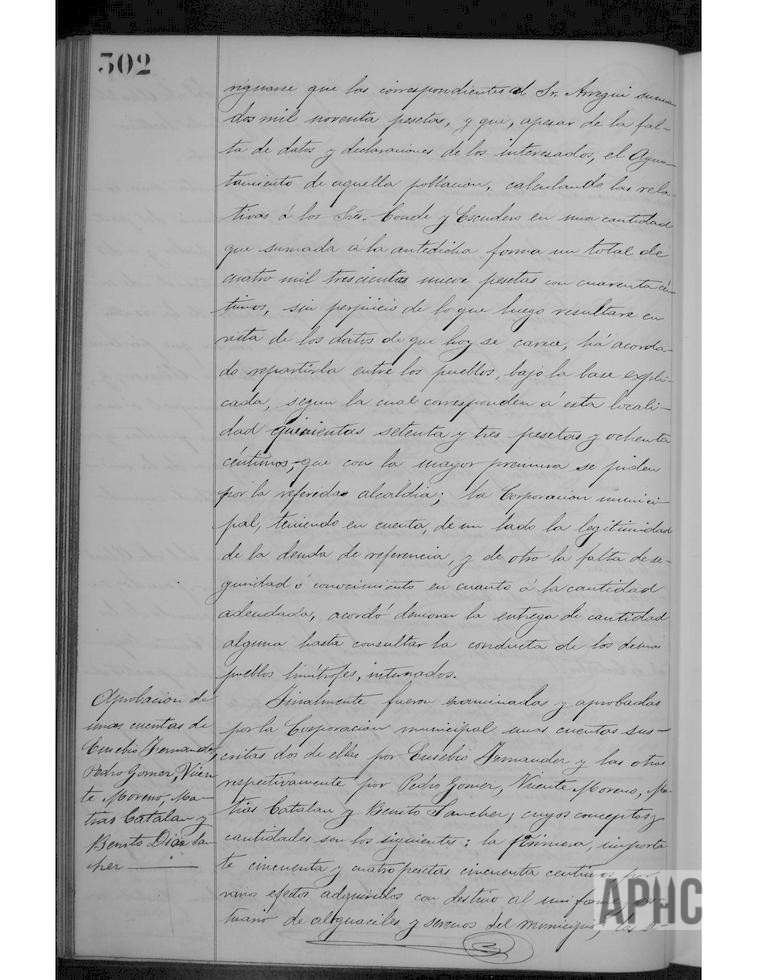 302
riguarse que los correspondientes al Sr. Arregui suman
dos mil noventa pesetas, y que, apesar de la fal-
ta de datos y declaraciones de los interesados, el Ayun-
tamiento de aquella poblacion, calculando las rela-
tivas á los Sres. Conde y Escudero en una cantidad
que sumada á la antedicha forma un total de
cuatro mil trescientas nueve pesetas con cuarenta cén-
timos, sin perjuicio de lo que luego resultare en
vista de los datos de que hoy se carece, há acorda-
do repartirla entre los pueblos, bajo la base expli-
cada, segun la cual corresponden á esta locali-
dad quinientas setenta y tres pesetas y ochenta
céntimos, que con la mayor premura se piden
por la referida alcaldia; la Corporacion munici-
pal, teniendo en cuenta, de un lado la legitimidad
de la deuda de referencia, y de otro la falta de se-
guridad ó conocimiento en cuanto á la cantidad
adeudada, acordó demorar la entrega de cantidad
alguna hasta consultar la conducta de los demas
pueblos limítrofes, interesados.
Aprobacion de
unas cuentas de
Eusebio Fernandez,
Pedro Gomez, Vicen-
te Moreno, Ma-
tias Catalan y
Benito Diaz San-
chez
Finalmente fueron examinadas y aprobadas
por la Corporacion municipal unas cuentas sus-
critas dos de ellas por Eusebio Fernandez y las otras
respectivamente por Pedro Gomez, Vicente Moreno, Ma-
tias Catalan y Benito Sanchez; cuyos conceptos y
cantidades son los siguientes: la primera, importan-
te cincuenta y cuatro pesetas cincuenta centimos, por
varios efectos adquiridos con destino al uniforme
de alguaciles y serenos del municipio; las
APHC